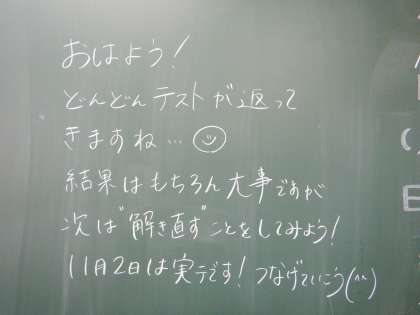 おはよう!
どんどんテストが返って
きますね…☺
結果はもちろん大事ですが
次は"解き直す"ことをしてみよう!
11月2日は実テです!つなげていこう(^^)